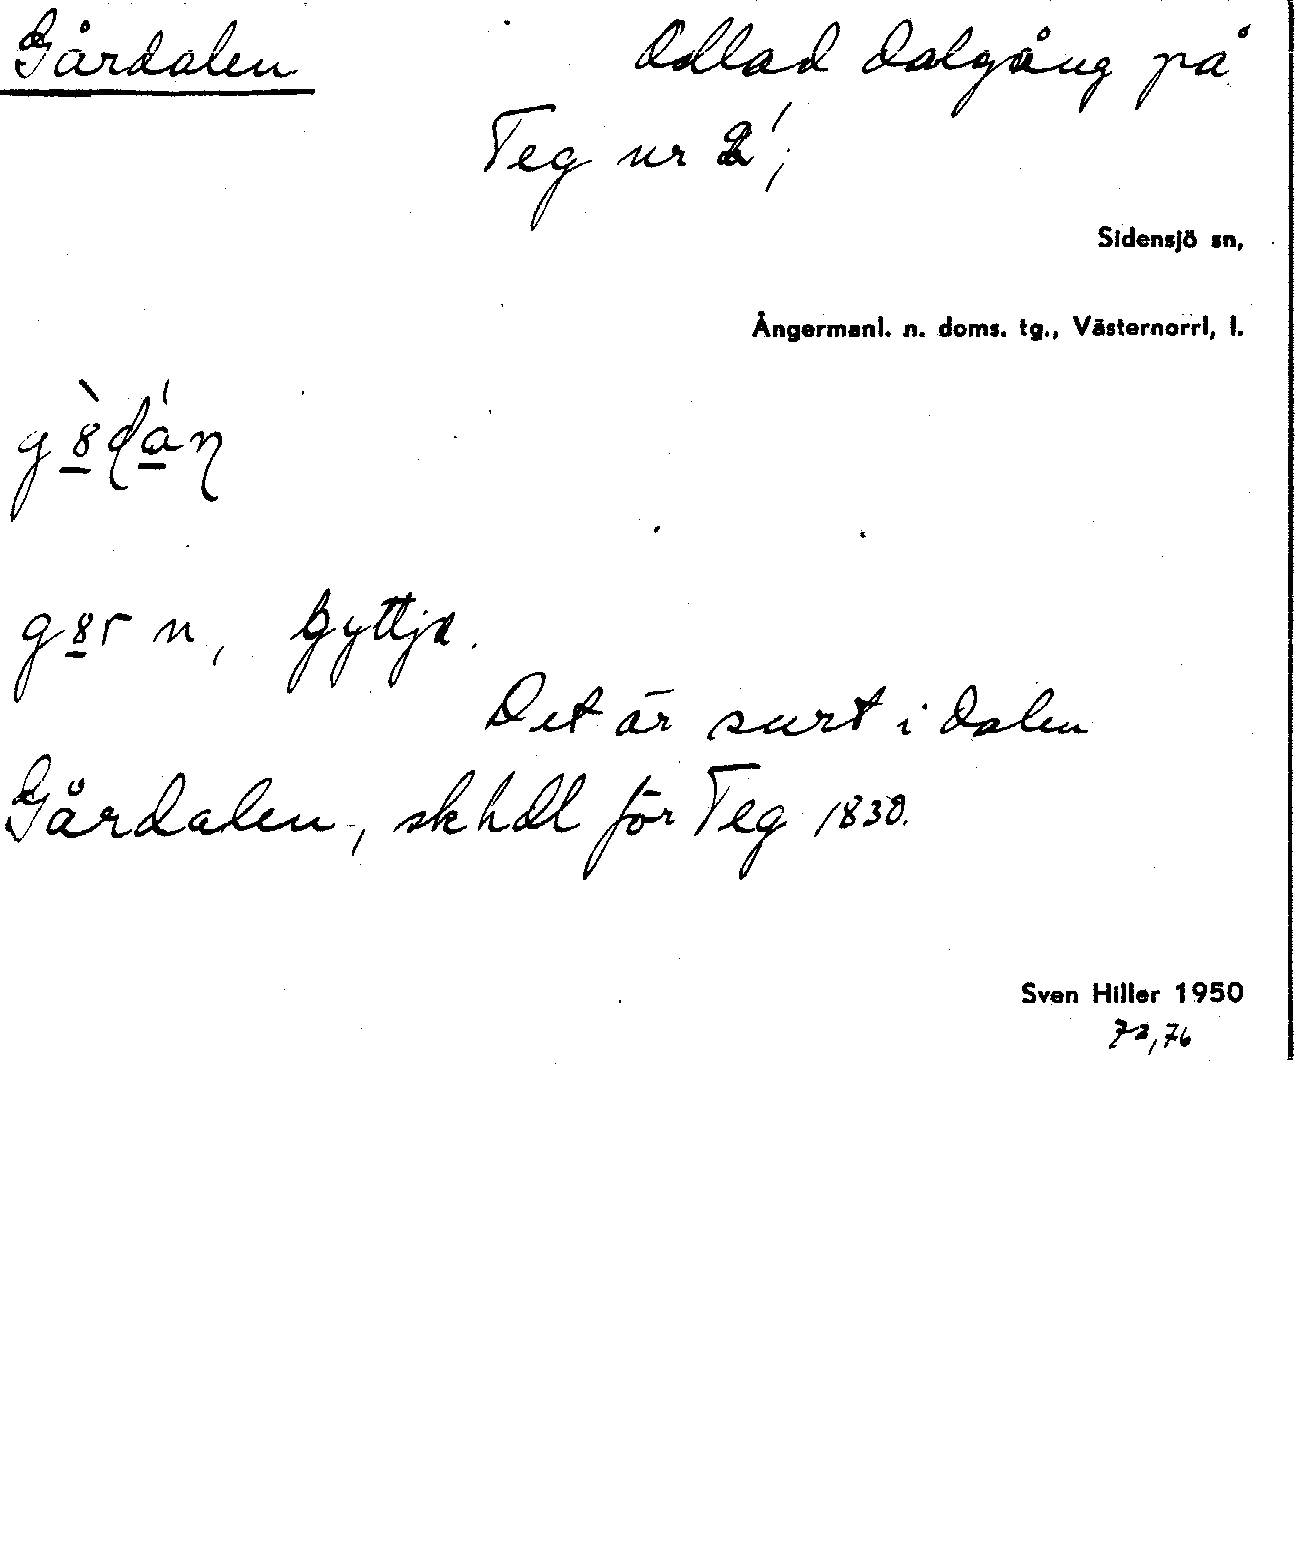 Gårdalen Odlad dalgång på
Teg nr 2¹;
Sidensjö sn,
Ångermanl. n. doms. tg., Västernorrl, l.
g8r n, gyttja.
Det är surt i dalen
Gårdalen, skhdl för Teg 1830.
Sven Hiller 1950
72,76